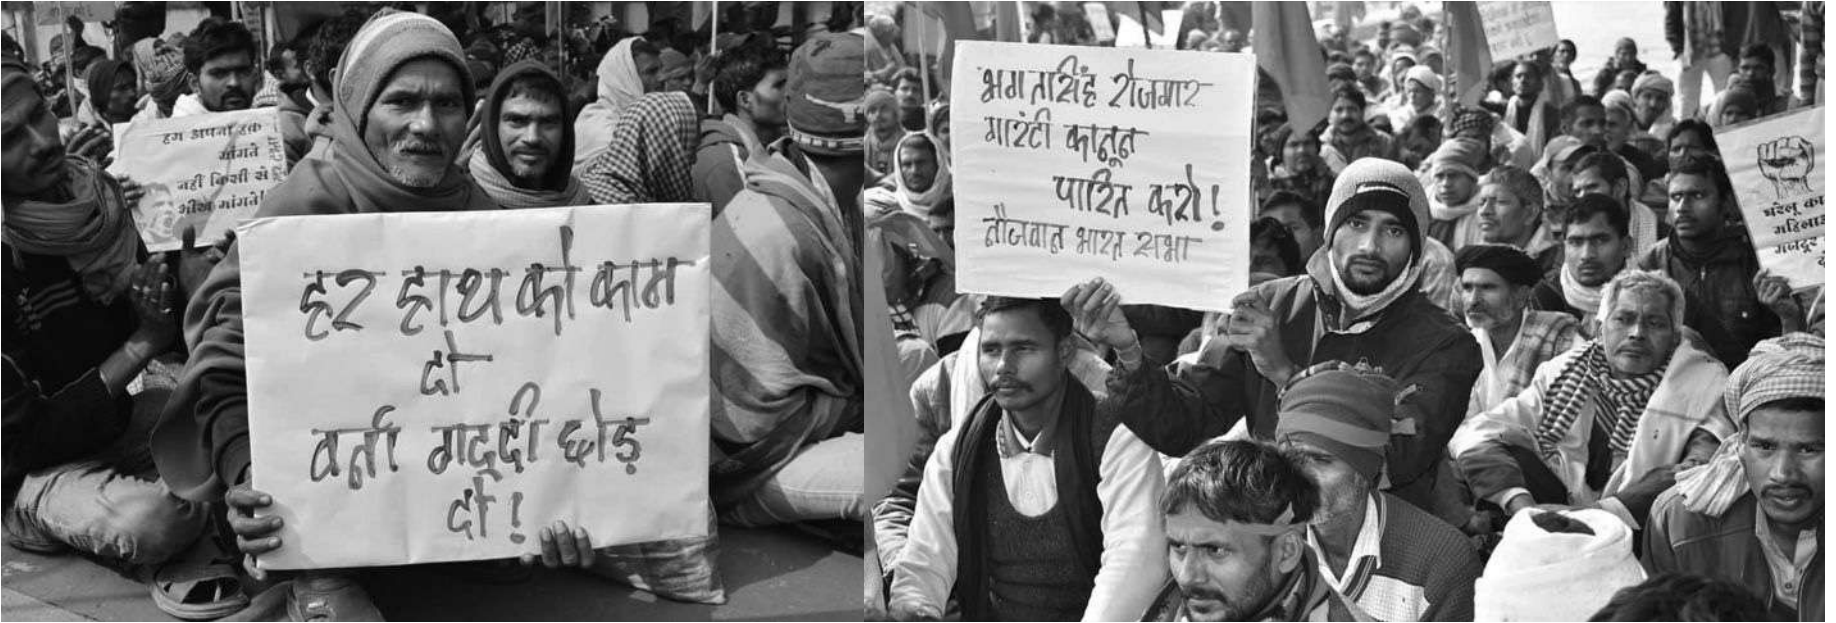 हम अपना हक़
मांगते
नहीं किसी से
भीख मांगते!
हर हाथ को काम
दो
वर्ना गद्दी छोड़
दो!
भगतसिंह रोजगार
गारंटी कानून
पारित करो!
नौजवान भारत सभा
घरेलू
महिला
मजदूर